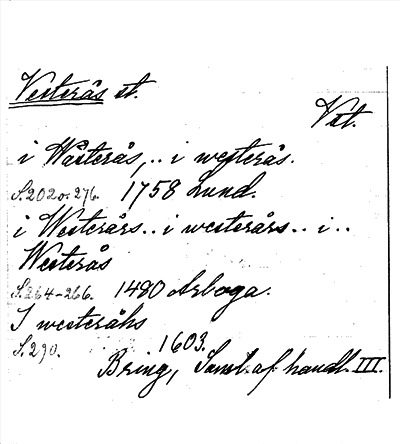 Vesterås st.
Vst.
i Wästerås,.. i westerås.
S. 202 o. 276. 1758 Lund.
i Westerårs.. i westerårs.. i..
Westerås
S. 264-266. 1490 Arboga.
I westeråhs
S. 290. 1603.
Bring, Saml. af handl. III.